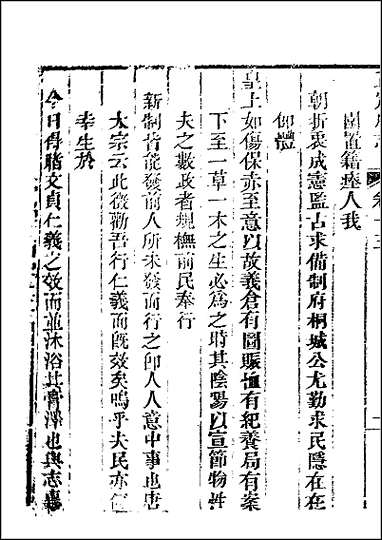 園置籍瘞人我
朝折衷成憲監古求備制府桐城公尤勤求民隱在在
仰體
皇上如傷保赤至意以故義倉有圖賑恤有紀養局有案
下至一草一木之生必為之時其陰陽以宣節物性
夫之數政者規橅前民奉行
新制皆能發前人所未發而行之卽人人意中事也唐
太宗云此徵勸吾行仁義而旣效矣嗚乎夫民亦何
幸生於
今日得睹文貞仁義之效而並沐浴其膏澤也與志